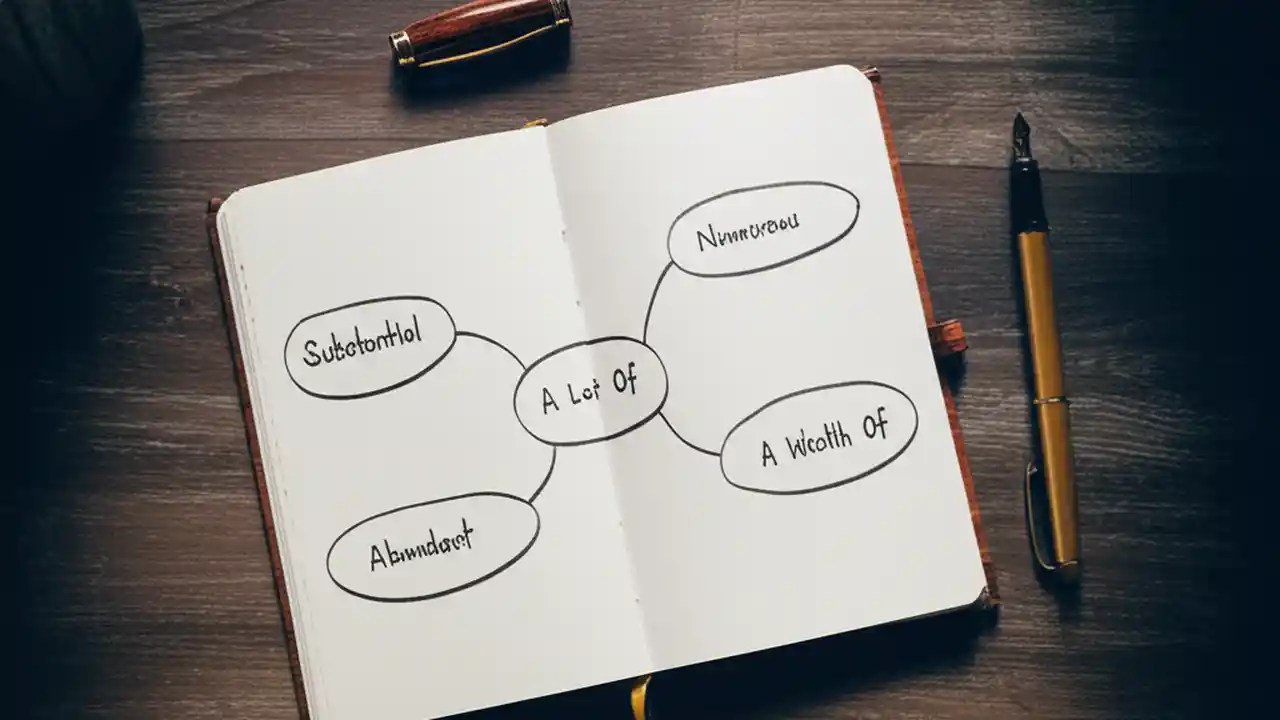 Numerous
Substantial
A Lot Of
A Wealth Of
Abundant